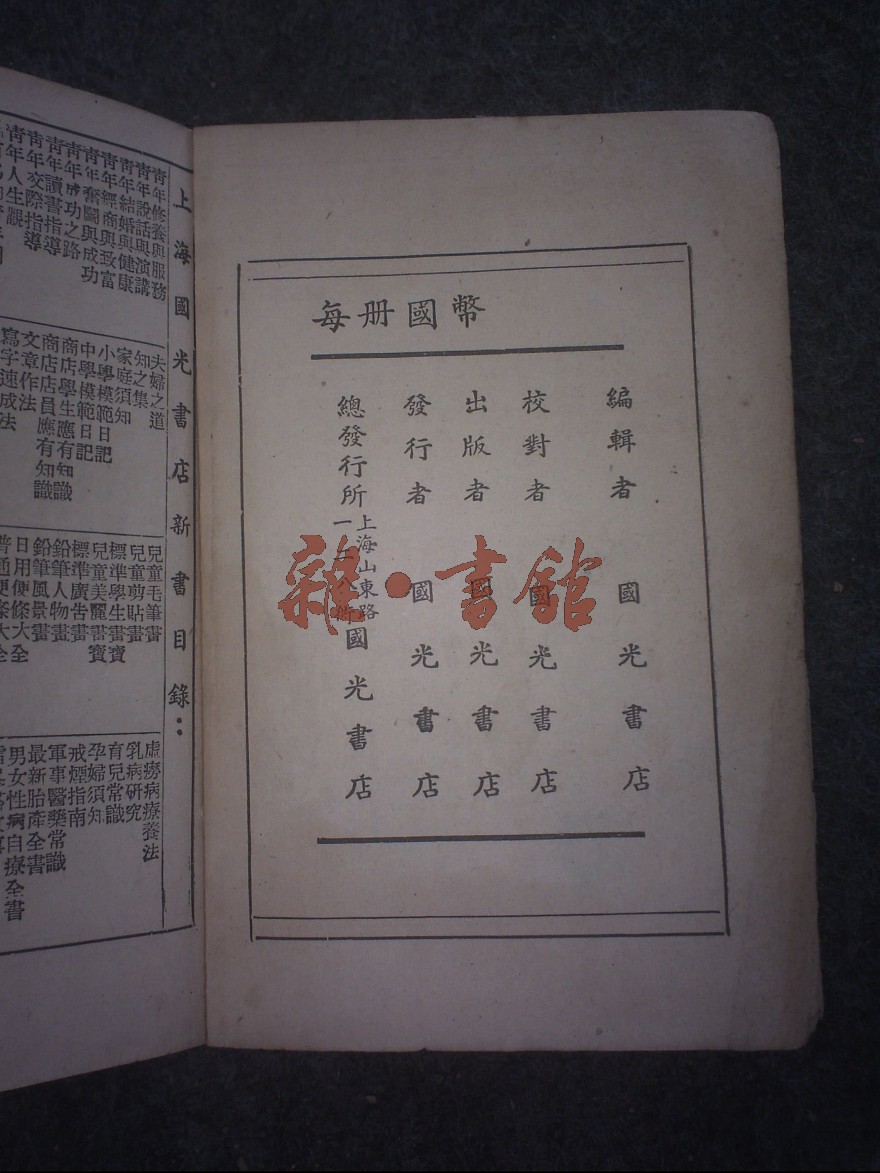 每册國幣
編輯者 國光書店
校對者 國光書店
出版者 國光書店
發行者 國光書店
總發行所 上海山東路 國光書店
雜·書館
上海國光書店新書目錄：
青年修養與服務
青年說話與演講
青年結婚與健康
青年經商與致富
青年奮鬭與成功
青年成功之路
青年讀書指導
青年交際指導
青年人生觀
夫婦之道
知之集
家庭須知
小學模範日記
中學模範日記
商店學生應有知識
商店店員應有知識
文章作法
寫字速成法
兒童毛筆畫
兒童剪貼畫
標準學生畫寶
兒童美麗畫寶
標準廣告畫
鉛筆人物畫
鉛筆風景畫
日用便條大全
普通便條大全
虛癆病療養法
乳病研究
育兒常識
孕婦須知
戒煙指南
軍事醫藥常識
最新胎產全書
男女性病自療全書